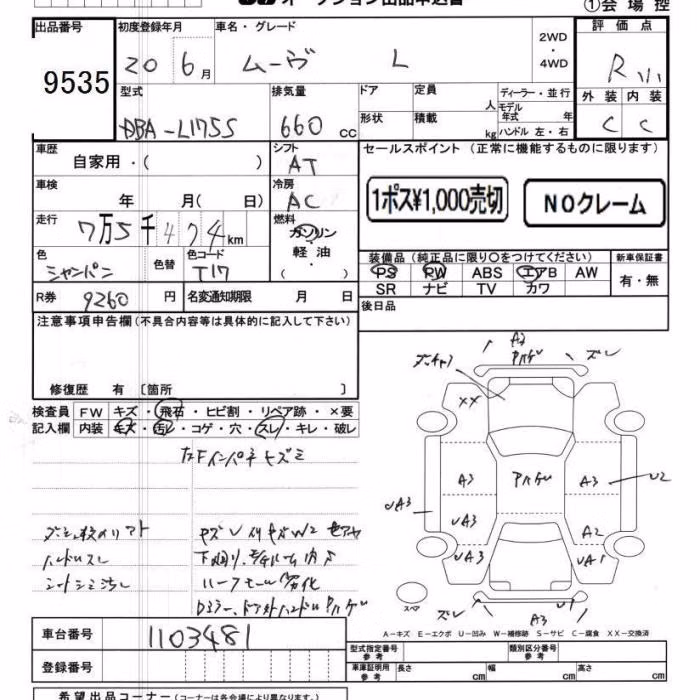 オークション出品申込書
①会場控
出品番号
9535
初度登録年月
20 6月
車名・グレード
ムーヴ L
2WD
・
4WD
評価点
R
外装 内装
C C
型式
DBA-L175S
排気量
660 cc
ドア
定員
人
形状
積載
kg
ディーラー・並行
モデル年式 年
ハンドル 左・右
車歴
自家用・( )
シフト
AT
車検
年 月( 日)
冷房
AC
走行
7万5千474km
燃料
ガソリン
・
軽油
・
( )
色
シャンパン
色替
色コード
T17
R券 9260 円
名変通知期限 月 日
セールスポイント (正常に機能するものに限ります)
1ポス¥1,000売切
NOクレーム
装備品 (純正品に限り○をつけてください)
PS PW ABS エアB AW
SR ナビ TV カワ
新車保証書
有・無
後日品
注意事項申告欄(不具合内容等は具体的に記入して下さい)
修復歴 有 〔箇所 〕
検査員記入欄
FW キズ・飛石・ヒビ割・リペア跡・×要
内装 キズ・汚レ・コゲ・穴・スレ・キレ・破レ
ハンドルスレ
シートシミ汚レ
A3
ズレ
XX
A3
A3
U2
UA3
UA3
A2
UA3
UA1
ズレ
A3
U1
スペア
A-キズ E-エクボ U-凹み W-補修跡 S-サビ C-腐食 XX-交換済
車台番号 1103481
登録番号
型式指定番号
参考
類別区分番号
参考
車庫証明用
参考
長さ cm
幅 cm
高さ cm
希望出品コーナー (コーナーは各会場により異なります。)